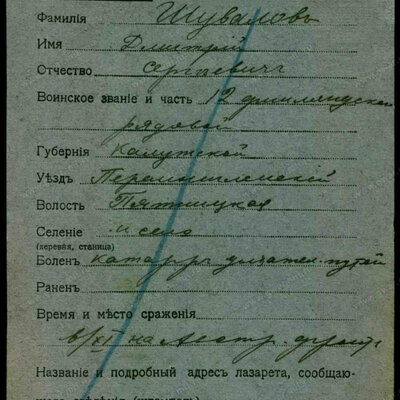 Фамилія Шуваловъ
Имя Дмитрій
Отчество Сергѣевичъ
Воинское званіе и часть 12 финляндской
рядовой
Губернія Калужской
Уѣздъ Перемышльскій
Волость Пятницкая
Селеніе и село
(деревня, станица)
Боленъ катарръ дыхател. путей
Раненъ
Время и мѣсто сраженія
в/XI на фронт
Названіе и подробный адресъ лазарета, сообщаю-